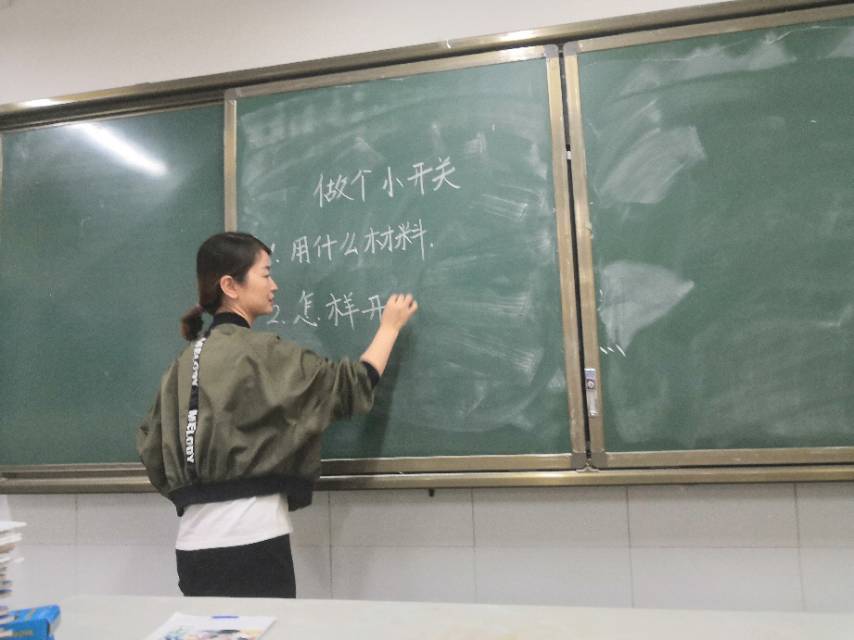 做个小开关
1.用什么材料.
2.怎样开
MELODY
MELODY